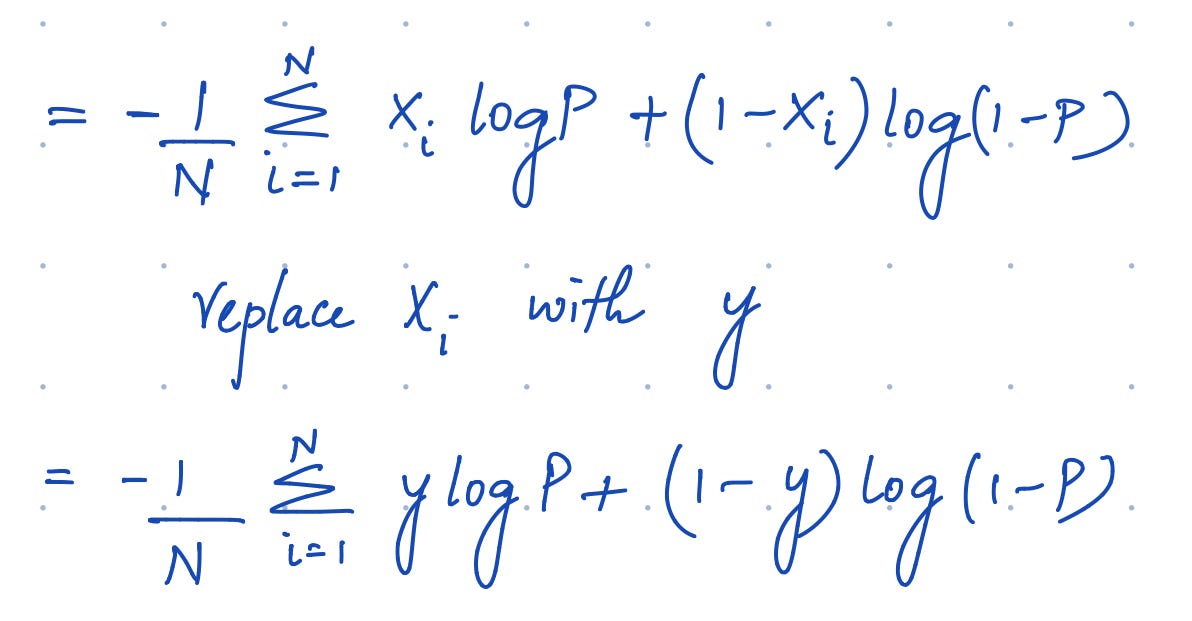 = -1/N Σ_{i=1}^{N} X_i log P + (1 - X_i) log(1 - P)
replace X_i with y
= -1/N Σ_{i=1}^{N} y log P + (1 - y) log(1 - P)